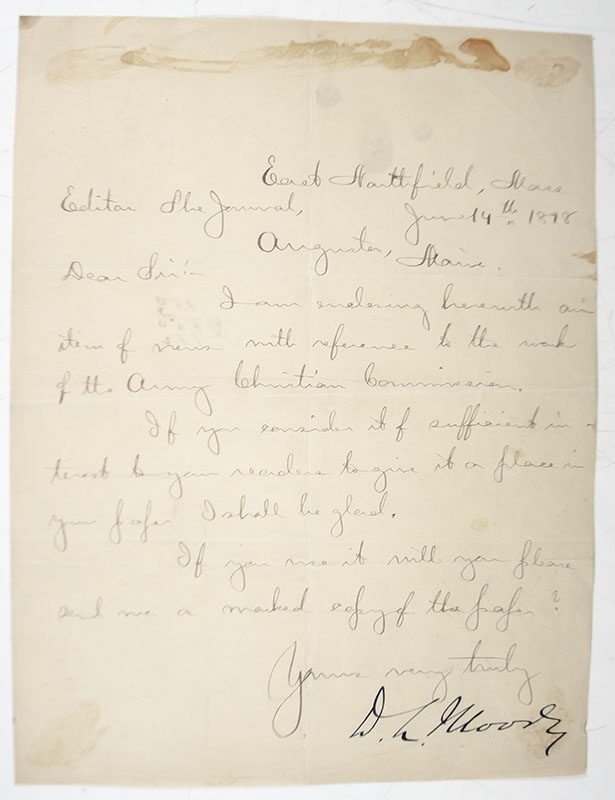 East Northfield, Mass
Editor The Journal,
June 14th 1898
Augusta, Maine.
Dear Sir:-
I am enclosing herewith an
item of news with reference to the work
of the Army Christian Commission.
If you consider it of sufficient in-
terest to your readers to give it a place in
your paper I shall be glad.
If you use it will you please
send me a marked copy of the paper?
Yours very truly
D. L. Moody